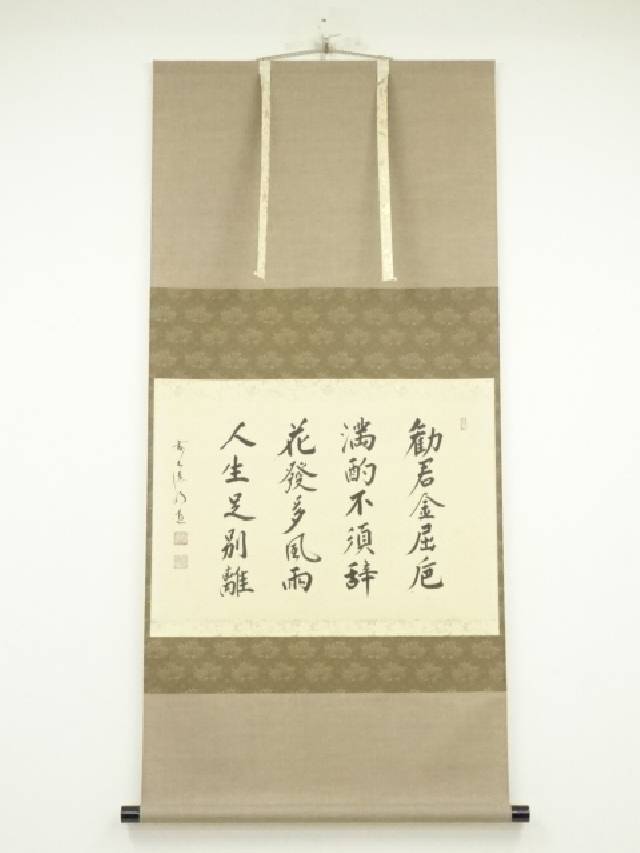 勧君金屈巵
満酌不須辞
花發多風雨
人生足別離